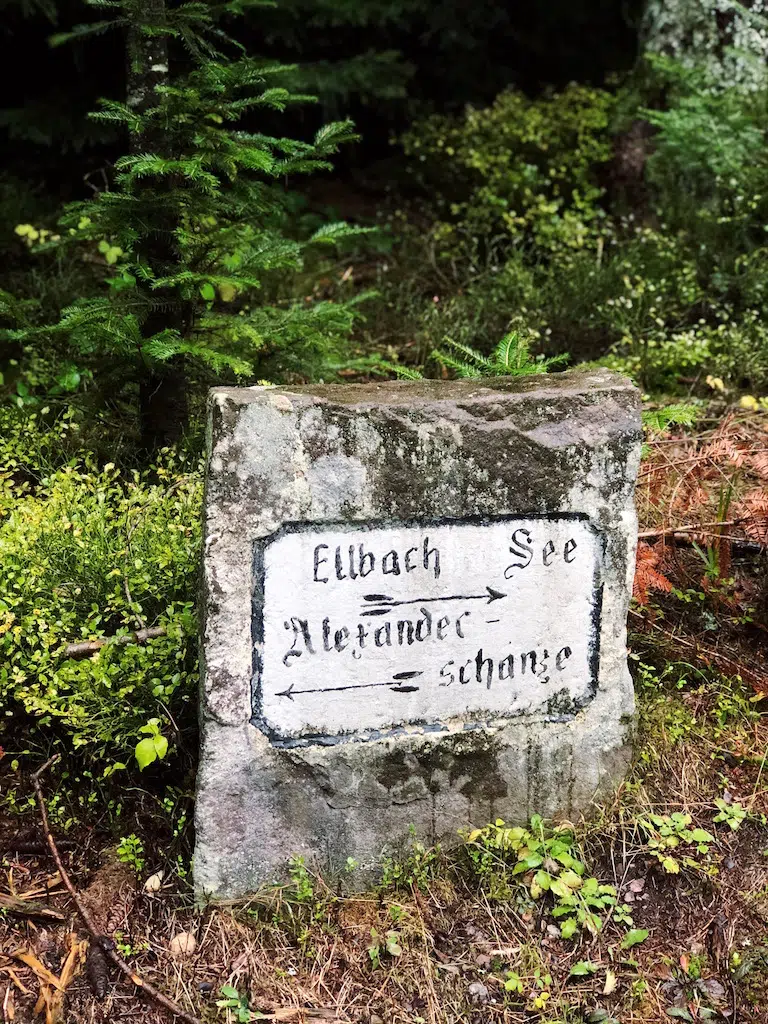 Ellbach See
Alexander-
schanze